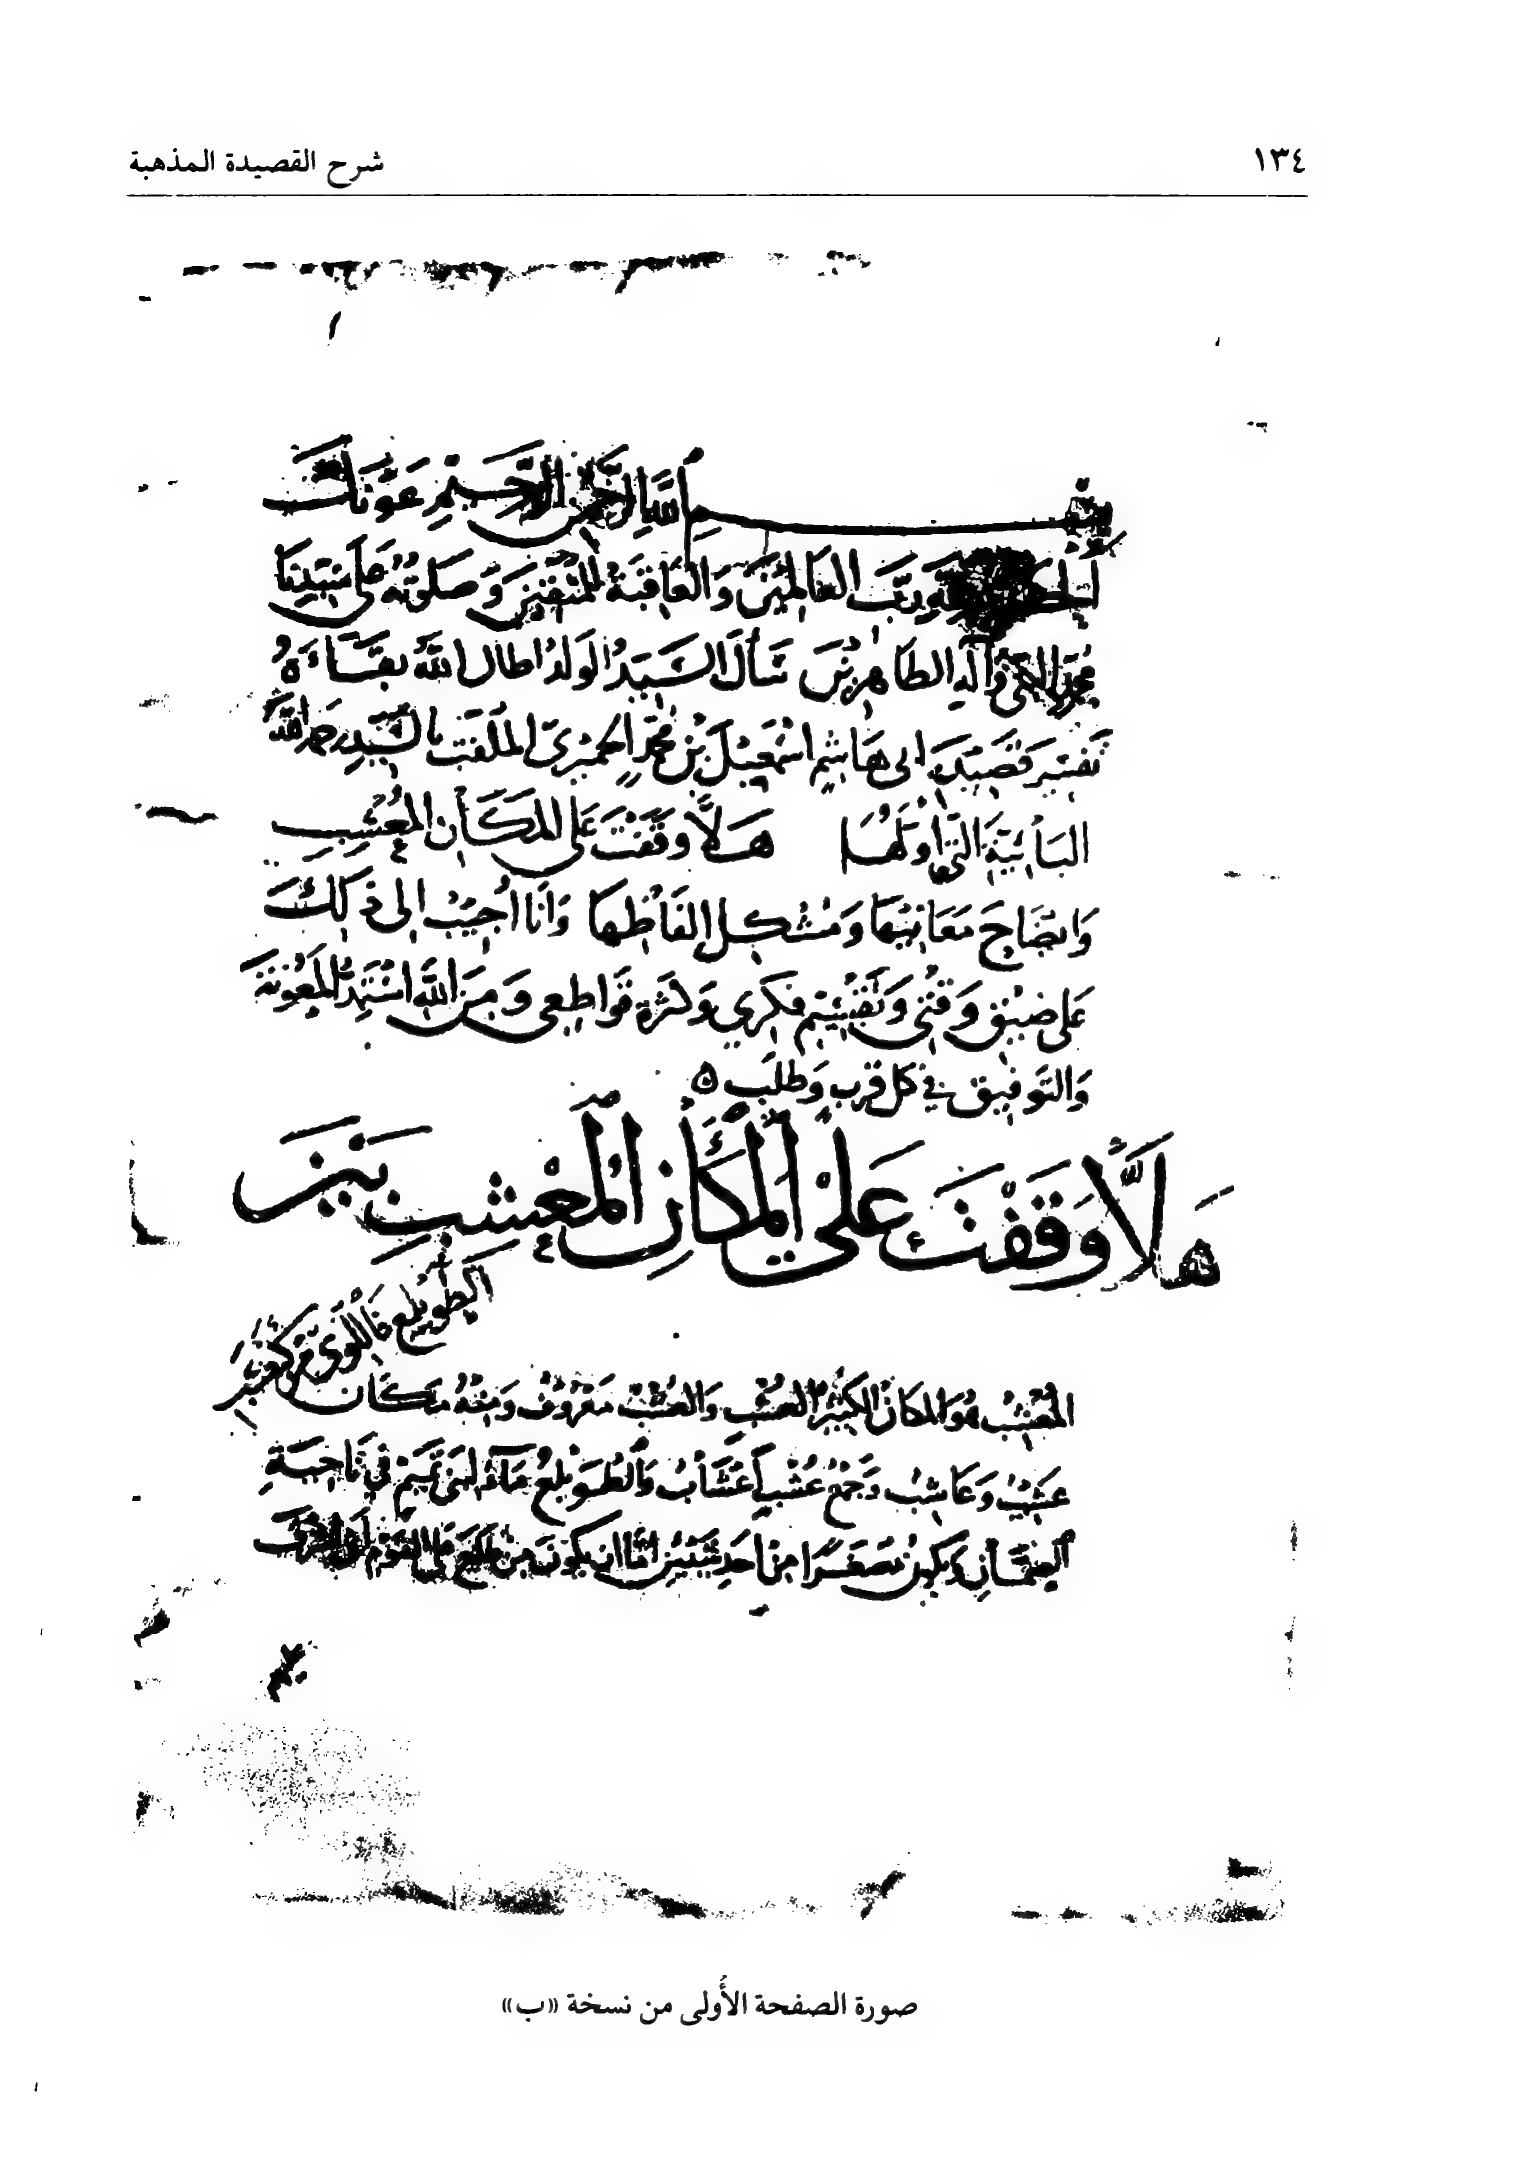 ١٣٤
شرح القصيدة المذهبة
بسم الله الرحمن الرحيم عونك
الحمد لله رب العالمين والعاقبة للمتقين وصلوته على سيدنا
محمد النبي وآله الطاهرين سأل السيد الولد اطال الله بقاءه
تفسير قصيدة ابى هاشم اسمعيل بن محمد الحميرى الملقب بالسيد رحمه الله
البائية التى اولها هلا وقفت على المكان المعشب
وايضاح معانيها ومشكل الفاظها وانا اجيب الى ذلك
على ضيق وقتى وتقسيم فكري وكثرة قواطعى ومن الله استمد المعونة
والتوفيق في كل قرب وطلب ه
هلا وقفت على المكان المعشب بين
الطويلع فاللوى من كبكب
المعشب هو المكان الكثير العشب والعشب معروف ومنه مكان
عشيب وعاشب وجمع عشب اعشاب والطويلع ماء لبنى تميم في ناحية
الصمان ويكون مصغرا من احد شيئين اما ان يكون من طلع على القوم
صورة الصفحة الأُولى من نسخة «ب»